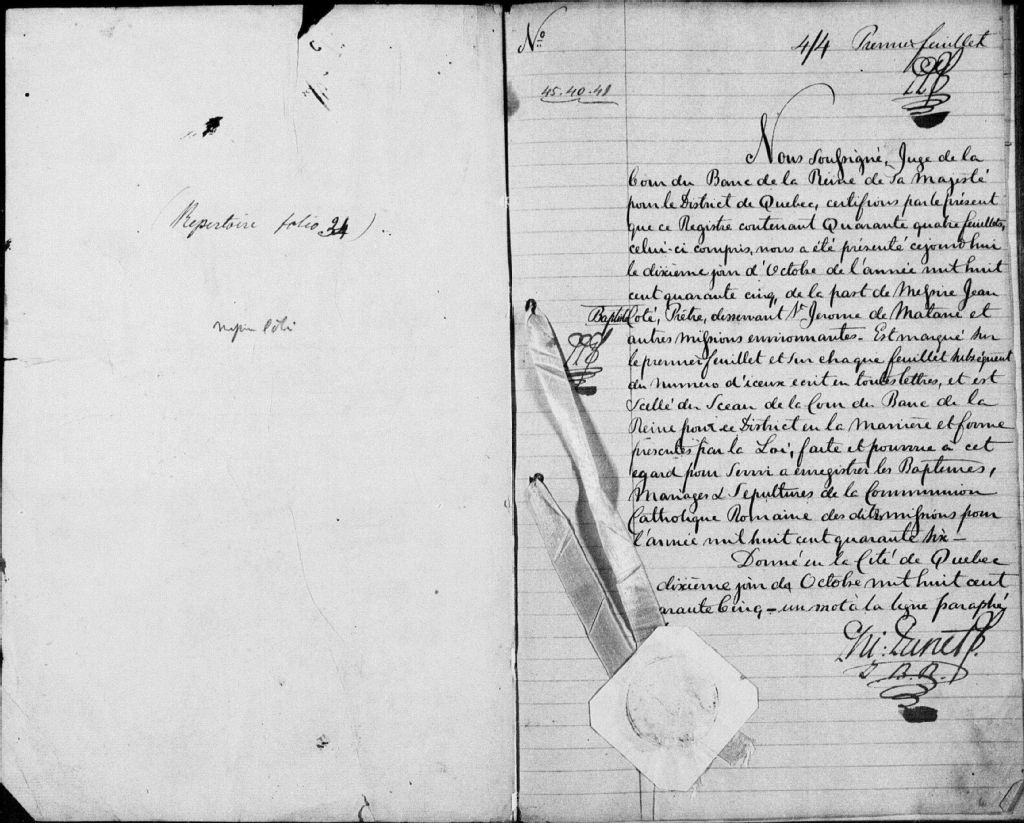 (Repertoire folio 34)
No
44 Premier feuillet
45-40-48
Nous soussigné, Juge de la
Cour du Banc de la Reine de Sa Majesté
pour le District de Quebec, certifions par le présent
que ce Registre contenant Quarante quatre feuillets,
celui-ci compris, nous a été présenté cejourd'hui
le dixième jour d'Octobre de l'année mil huit
cent quarante cinq, de la part de Messire Jean
Baptiste Coté, Prêtre, desservant St Jerome de Matane et
autres missions environnantes. - Est marqué sur
le premier feuillet et sur chaque feuillet subséquent
du numero d'iceux ecrit en toutes lettres, et est
Scellé du Sceau de la Cour du Banc de la
Reine pour ce District en la Manière et forme
prescrites par la Loi, faite et pourvue à cet
egard pour servir a enregistrer les Baptêmes,
Mariages & Sepultures de la Communion
Catholique Romaine des dites missions pour
l'année mil huit cent quarante six -
Donné en la Cité de Quebec
dixième jour de Octobre mil huit cent
arante Cinq - un mot à la ligne paraphé
J. B. R.